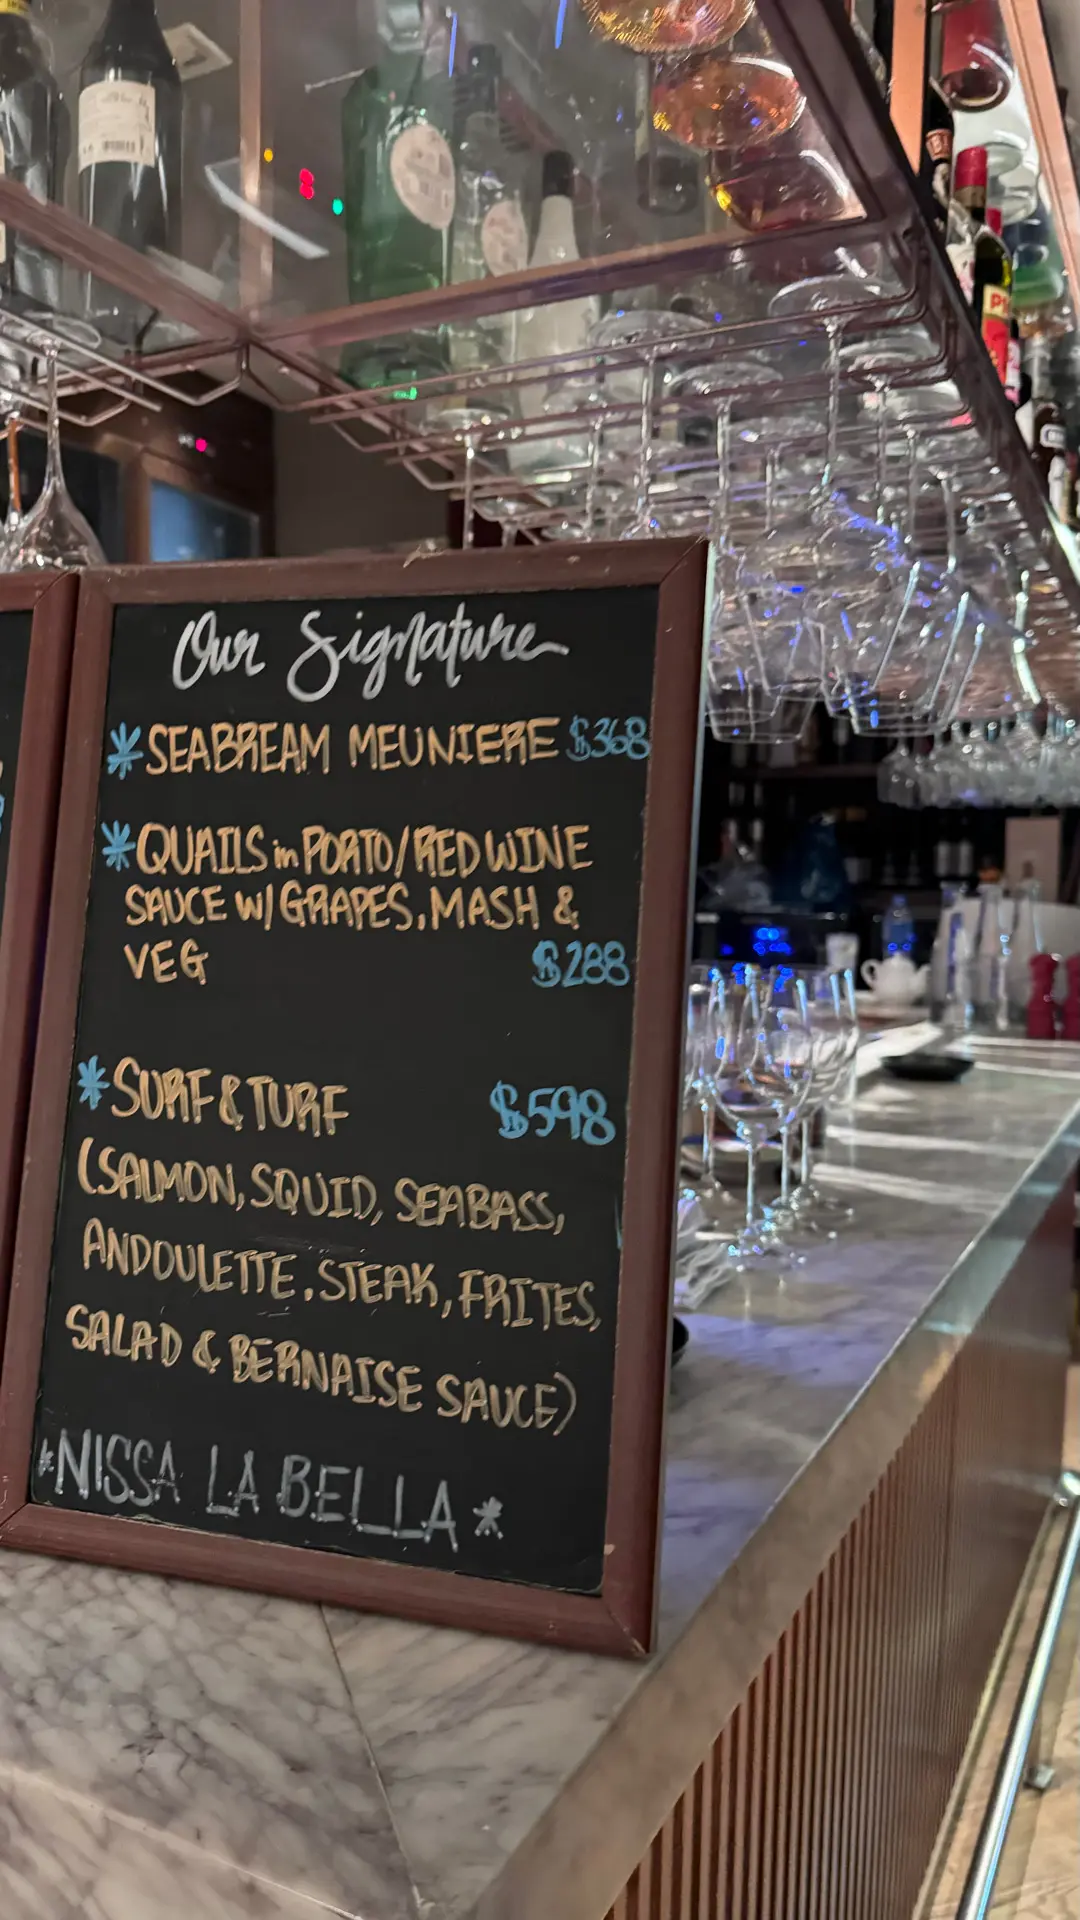 Our Signature
*SEABREAM MEUNIERE $368
*QUAILS in PORTO/RED WINE
SAUCE W/ GRAPES, MASH &
VEG $288
*SURF & TURF $598
(SALMON, SQUID, SEABASS,
ANDOULETTE, STEAK, FRITES,
SALAD & BERNAISE SAUCE)
*NISSA LA BELLA*